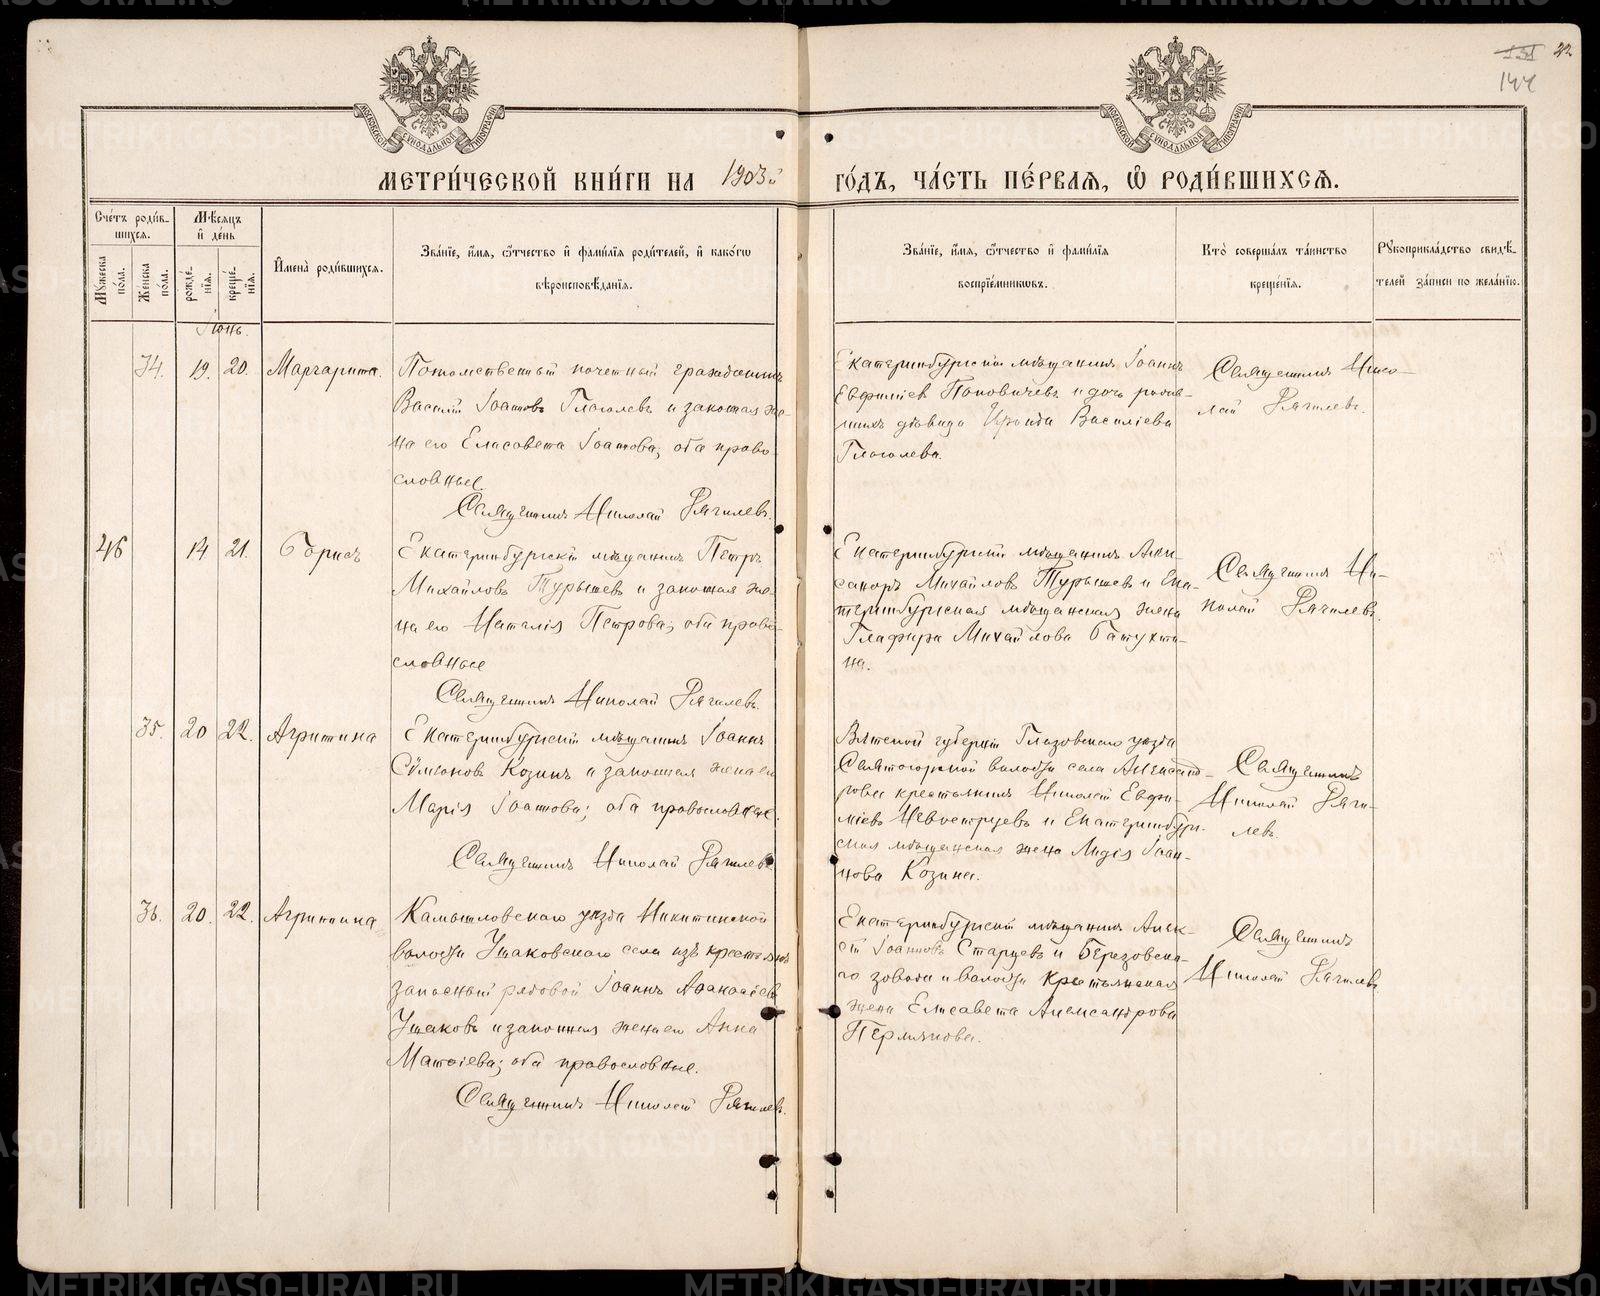 METRIKI.GASO-URAL.RU
144
22
МОСКОВСКОЙ СУНОДАЛЬНОЙ ТИПОГРАФІИ
МОСКОВСКОЙ СУНОДАЛЬНОЙ ТИПОГРАФІИ
МЕТРИ́ЧЕСКОЙ КНИ́ГИ НА 1903й ГО́ДЪ, ЧА́СТЬ ПЕ́РВАѦ, Ѽ РОДИ́ВШИХСѦ.
Сче́тъ роди́в-
шихсѧ.
Мꙋ́жеска по́ла.
Же́нска по́ла.
Мѣ́сѧцъ
и҆ де́нь
рожде́-
нїѧ.
креще́-
нїѧ.
И҆мена̀ роди́вшихсѧ.
Зва́нїе, и҆́мѧ, ѻ҆́тчество и҆ фами́лїѧ роди́телей, и҆ како́гѡ
вѣроисповѣ́данїѧ.
Зва́нїе, и҆́мѧ, ѻ҆́тчество и҆ фами́лїѧ
воспрїе́мникѡвъ.
Кто̀ соверша́лъ та́инство
креще́нїѧ.
Рꙋкоприкла́дство свидѣ́-
телей за́писи по жела́нїю.
Іюнь.
34. 19. 20. Маргарита.
Потомственный почетный гражданинъ
Василій Іоанновъ Глаголевъ и законная же-
на его Елисавета Іоаннова; оба право-
славные.
Священникъ Николай Рячилевъ.
Екатеринбургскій мѣщанинъ Іоаннъ
Евфиміевъ Поповичевъ и дочь родив-
шихъ дѣвица Ираида Василіева
Глаголева.
Священникъ Нико-
лай Рячилевъ.
46 14 21. Борисъ
Екатеринбургскій мѣщанинъ Петръ
Михайловъ Турышевъ и законная же-
на его Наталія Петрова; оба право-
славные
Священникъ Николай Рячилевъ.
Екатеринбургскій мѣщанинъ Алек-
сандръ Михайловъ Турышевъ и Ека-
теринбургская мѣщанская жена
Глафира Михайлова Батухти-
на.
Священникъ Ни-
колай Рячилевъ.
35. 20 22. Агрипина
Екатеринбургскій мѣщанинъ Іоаннъ
Сѵмеоновъ Козинъ и законная жена его
Марія Іоаннова; оба православные.
Священникъ Николай Рячилевъ
Вятской губерніи Глазовскаго уѣзда
Святогорской волости села Александ-
рова крестьянинъ Николай Евфи-
міевъ Невоструевъ и Екатеринбург-
ская мѣщанская жена Лидія Іоан-
нова Козина.
Священникъ
Николай Рячи-
левъ.
36. 20. 22. Агрипина
Камышловскаго уѣзда Никитинской
волости Ушаковскаго села изъ крестьянъ
запасный рядовой Іоаннъ Аѳанасіевъ
Ушаковъ и законная жена его Анна
Матѳіева; оба православные.
Священникъ Николай Рячилевъ.
Екатеринбургскій мѣщанинъ Алек-
сій Іоанновъ Старцевъ и Березовска-
го завода и волости крестьянская
жена Елисавета Александрова
Пермякова.
Священникъ
Николай Рячилевъ.